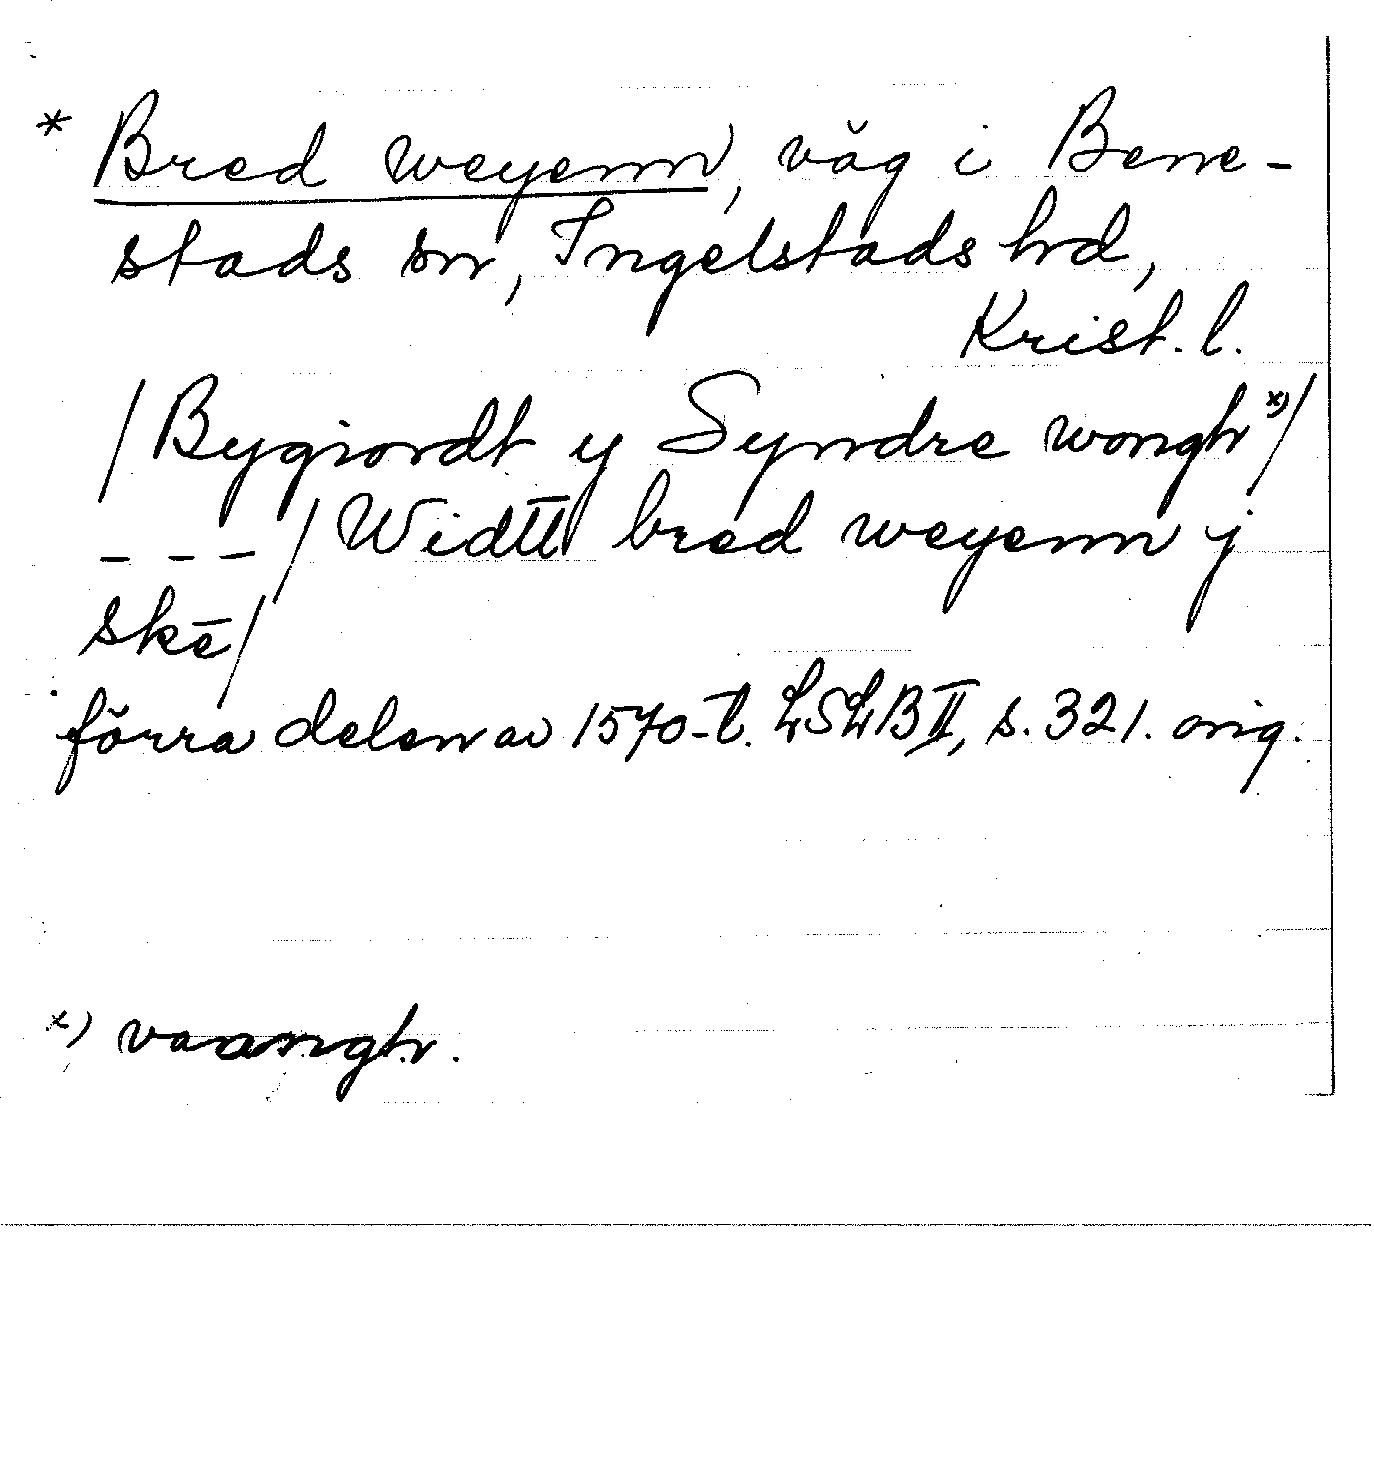 * Bred weyenn, väg i Bene-
stads sn, Ingelstads hd,
Krist. l.
/Bygiordt y Syndre wongh x)/
- - - /Widtt bred weyenn j
skē/
förra delen av 1570-t. LSLB II, s. 321. orig.
x) vaangh.